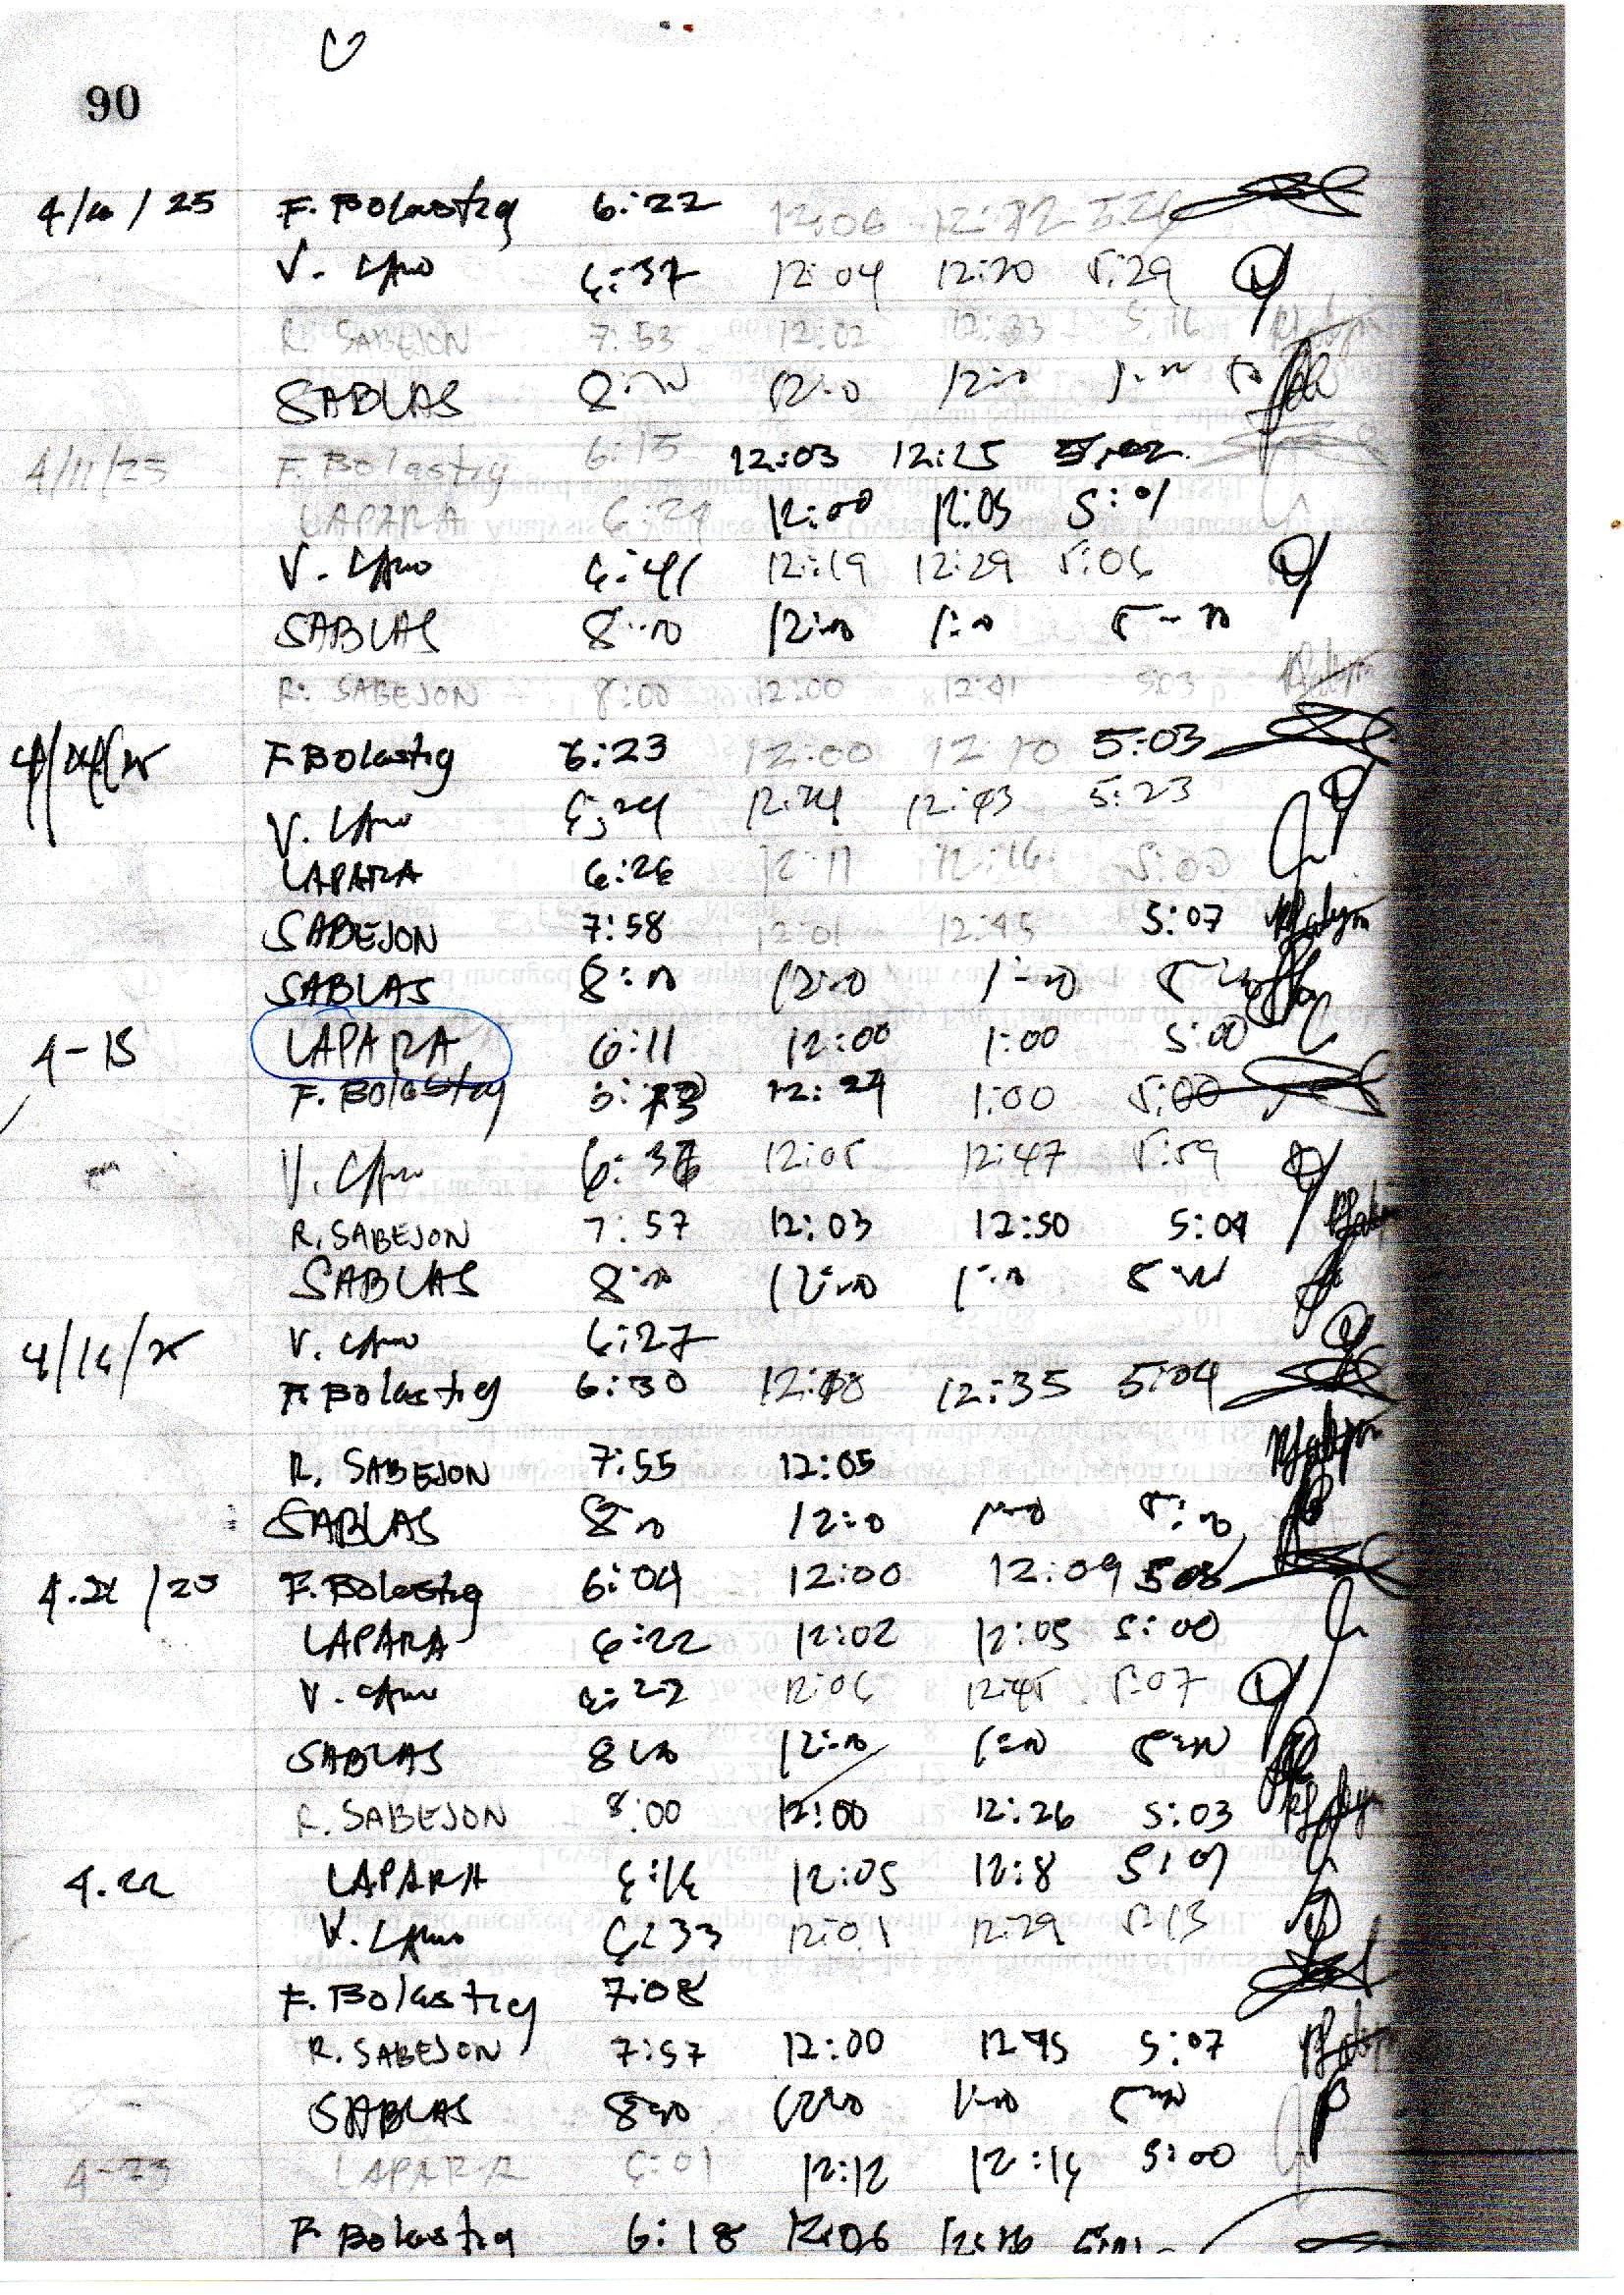 90
4/10/25 F. Bolastig 6:22 12:06 12:12 5:24
V. Cano 6:37 12:04 12:20 5:29
R. SABEJON 7:53 12:02 12:33 5:16
SABLAS 8:00 12:0 12:0
4/11/25 F. Bolastig 6:15 12:03 12:25 5:02
LAPARA 6:24 12:00 12:05 5:01
V. Cano 6:41 12:19 12:29 5:06
SABLAS 8:00 12:00 1:0 5-00
R. SABEJON 8:00 12:00 12:41 503
4/14/25 F. Bolastig 6:23 12:00 12:10 5:03
V. Cano 6:24 12:24 12:43 5:23
LAPARA 6:26 12:11 12:16 5:00
SABEJON 7:58 12:01 12:45 5:07
SABLAS 8:00 12:0 1:00
4-15 LAPARA 6:11 12:00 1:00 5:00
F. Bolastig 12:24 1:00 5:00
V. Cano 6:36 12:05 12:47 5:59
R. SABEJON 7:57 12:03 12:50 5:04
SABLAS 8:00 12:00 1:00 5:00
4/16/25 V. Cano 6:27
F. Bolastig 6:30 12:00 12:35 5:04
R. SABEJON 7:55 12:05
SABLAS 8:00 12:0 1:00 5:00
4.21/25 F. Bolastig 6:04 12:00 12:09
LAPARA 6:22 12:02 12:05 5:00
V. Cano 6:27 12:06 12:45 5:07
SABLAS 8:00 12:00 1:00 5:00
R. SABEJON 8:00 12:00 12:26 5:03
4.22 LAPARA 6:16 12:05 12:8 5:01
V. Cano 6:33 12:01 12:29 5:13
F. Bolastig 7:08
R. SABEJON 7:57 12:00 12 45 5:07
SABLAS 8:00 12:00 1:00 5:00
4-23 LAPARA 6:01 12:12 12:14 5:00
F. Bolastig 6:18 12:06 12:16